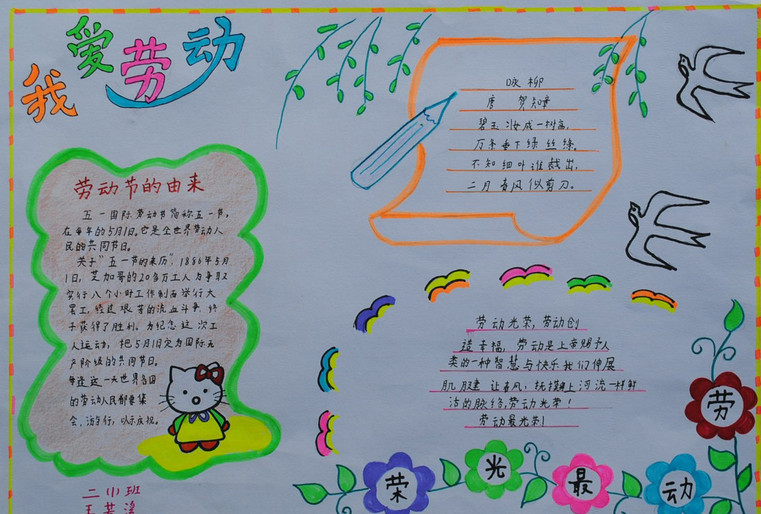 我爱劳动
劳动节的由来
五一国际劳动节简称五一节,
在每年的5月1日,它是全世界劳动人
民的共同节日。
关于"五一节的来历",1886年5月
1日,芝加哥的20多万工人为争取
实行八个小时工作制而举行大
罢工,经过艰苦的流血斗争,终
于获得了胜利。为纪念这次工
人运动,把5月1日定为国际无
产阶级的共同节日。
每逢这一天世界各国
的劳动人民都要集
会、游行,以示庆祝。
二(1)班
咏柳
唐 贺知章
碧玉妆成一树高,
万条垂下绿丝绦。
不知细叶谁裁出,
二月春风似剪刀。
劳动光荣,劳动创
造幸福,劳动是上帝赐予人
类的一种智慧与快乐我们伸展
肌腱 让春风,抚摸上河流一样鲜
活的脉络,劳动光荣!
劳动最光荣!
劳
动
最
光
荣